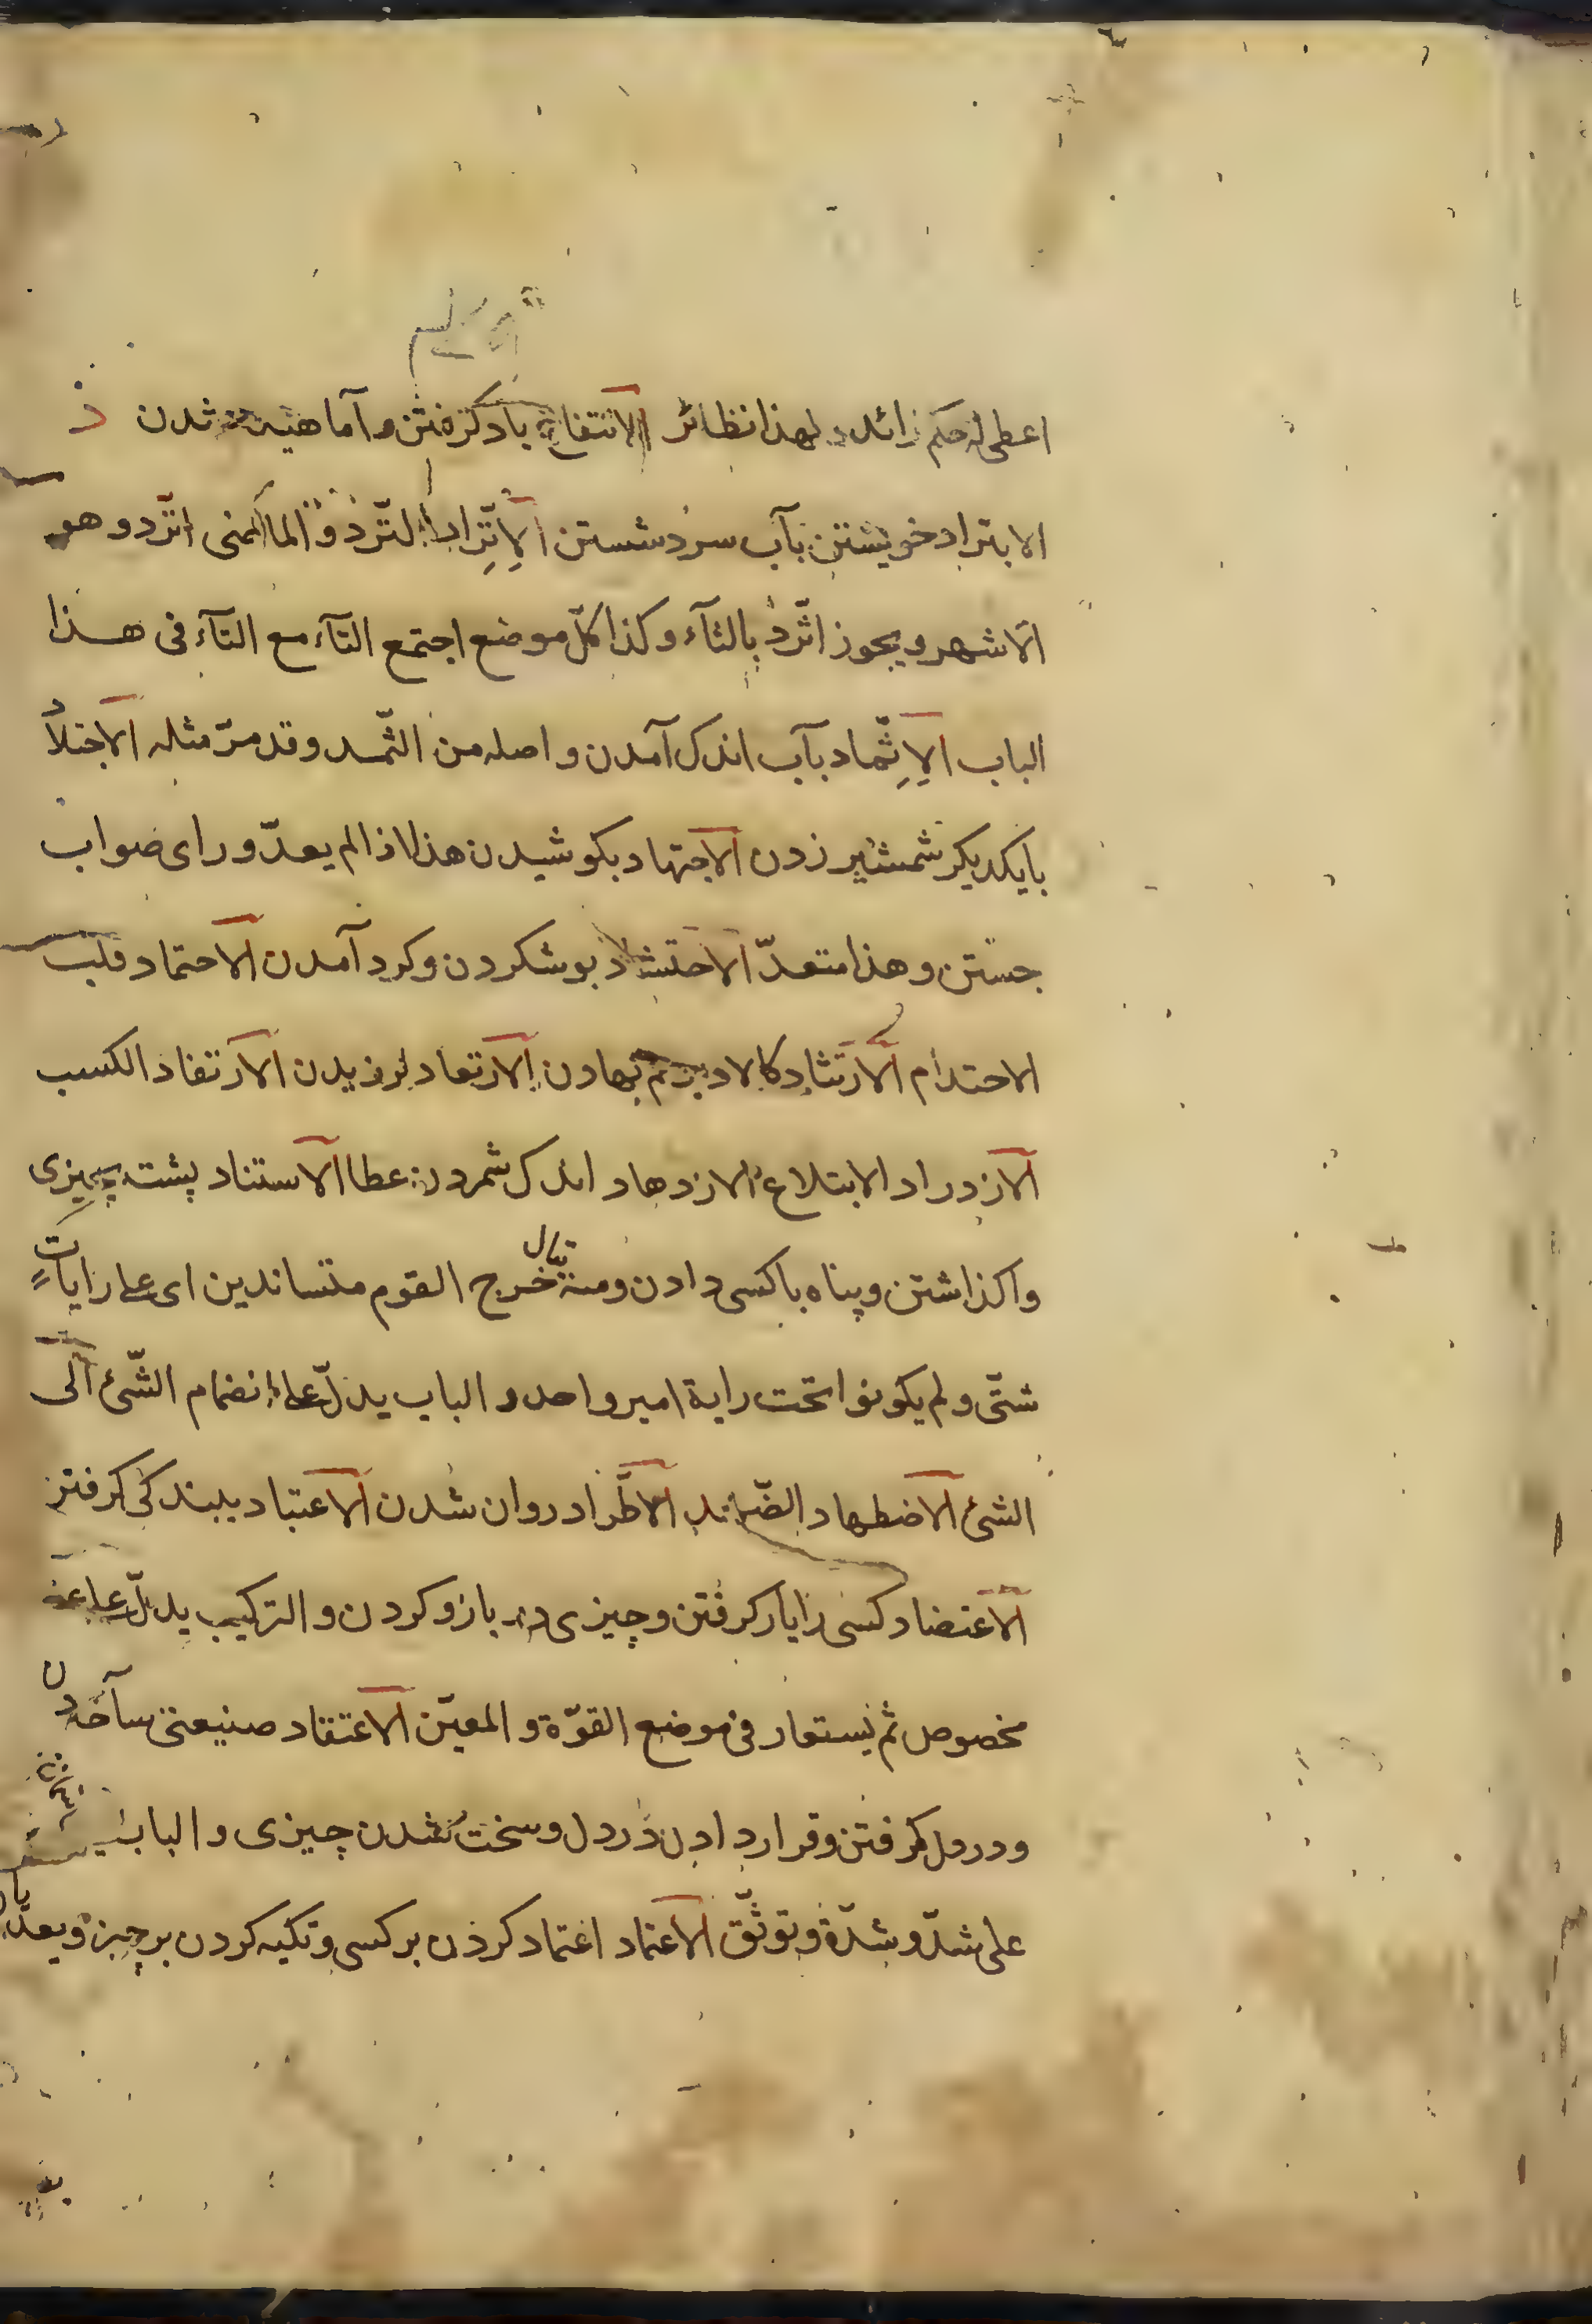 اعطی له حکم زائد ولهذا نظائر الانتفاخ باد گرفتن و آماهیده شدن د
الابتراد خویشتن بآب سرد شستن الاِتِّراد الثّرد والما بمعنی اتّرد و هو
الاشهر و یجوز اثّرد بالثآء و کذا کلّ موضع اجتمع الثآء مع التآء فی هذا
الباب الاِثِّماد بآب اندک آمدن و اصله من الثّمد و قد مرّ مثله الاجتلاد
بایکدیگر شمشیر زدن الاجتهاد بکوشیدن هذا اذا لم یعدّ و رای صواب
جستن و هذا متعدّ الاحتشاد بوش کردن و گرد آمدن الاحتماد قلب
الاحتدام الارتثاد کالا برهم نهادن الارتعاد لرزیدن الارتفاد الکسب
الازدراد الابتلاع الازدهاد اندک شمردن عطا الاستناد پشت بچیزی
واگذاشتن و پناه باکسی دادن و منه یقال خرج القوم متساندین ای علی رایات
شتّی و لم یکونوا تحت رایة امیر واحد و الباب یدلّ علی انضمام الشّئ الی
الشئ الاضطهاد الاطّراد روان شدن الاعتباد ببندگی گرفتن
الاعتضاد کسی را یار گرفتن و چیزی در بازو کردن و الترکیب یدلّ علی عضو
مخصوص ثم یستعار فی موضع القوّة و المعین الاعتقاد ضیعتی ساختن
و در دل گرفتن و قرار دادن در دل و سخت شدن چیزی و الباب
علی شدّ و شدّة و توثّق الاعتماد اعتماد کردن بر کسی و تکیه کردن بر چیز و یعدّیان